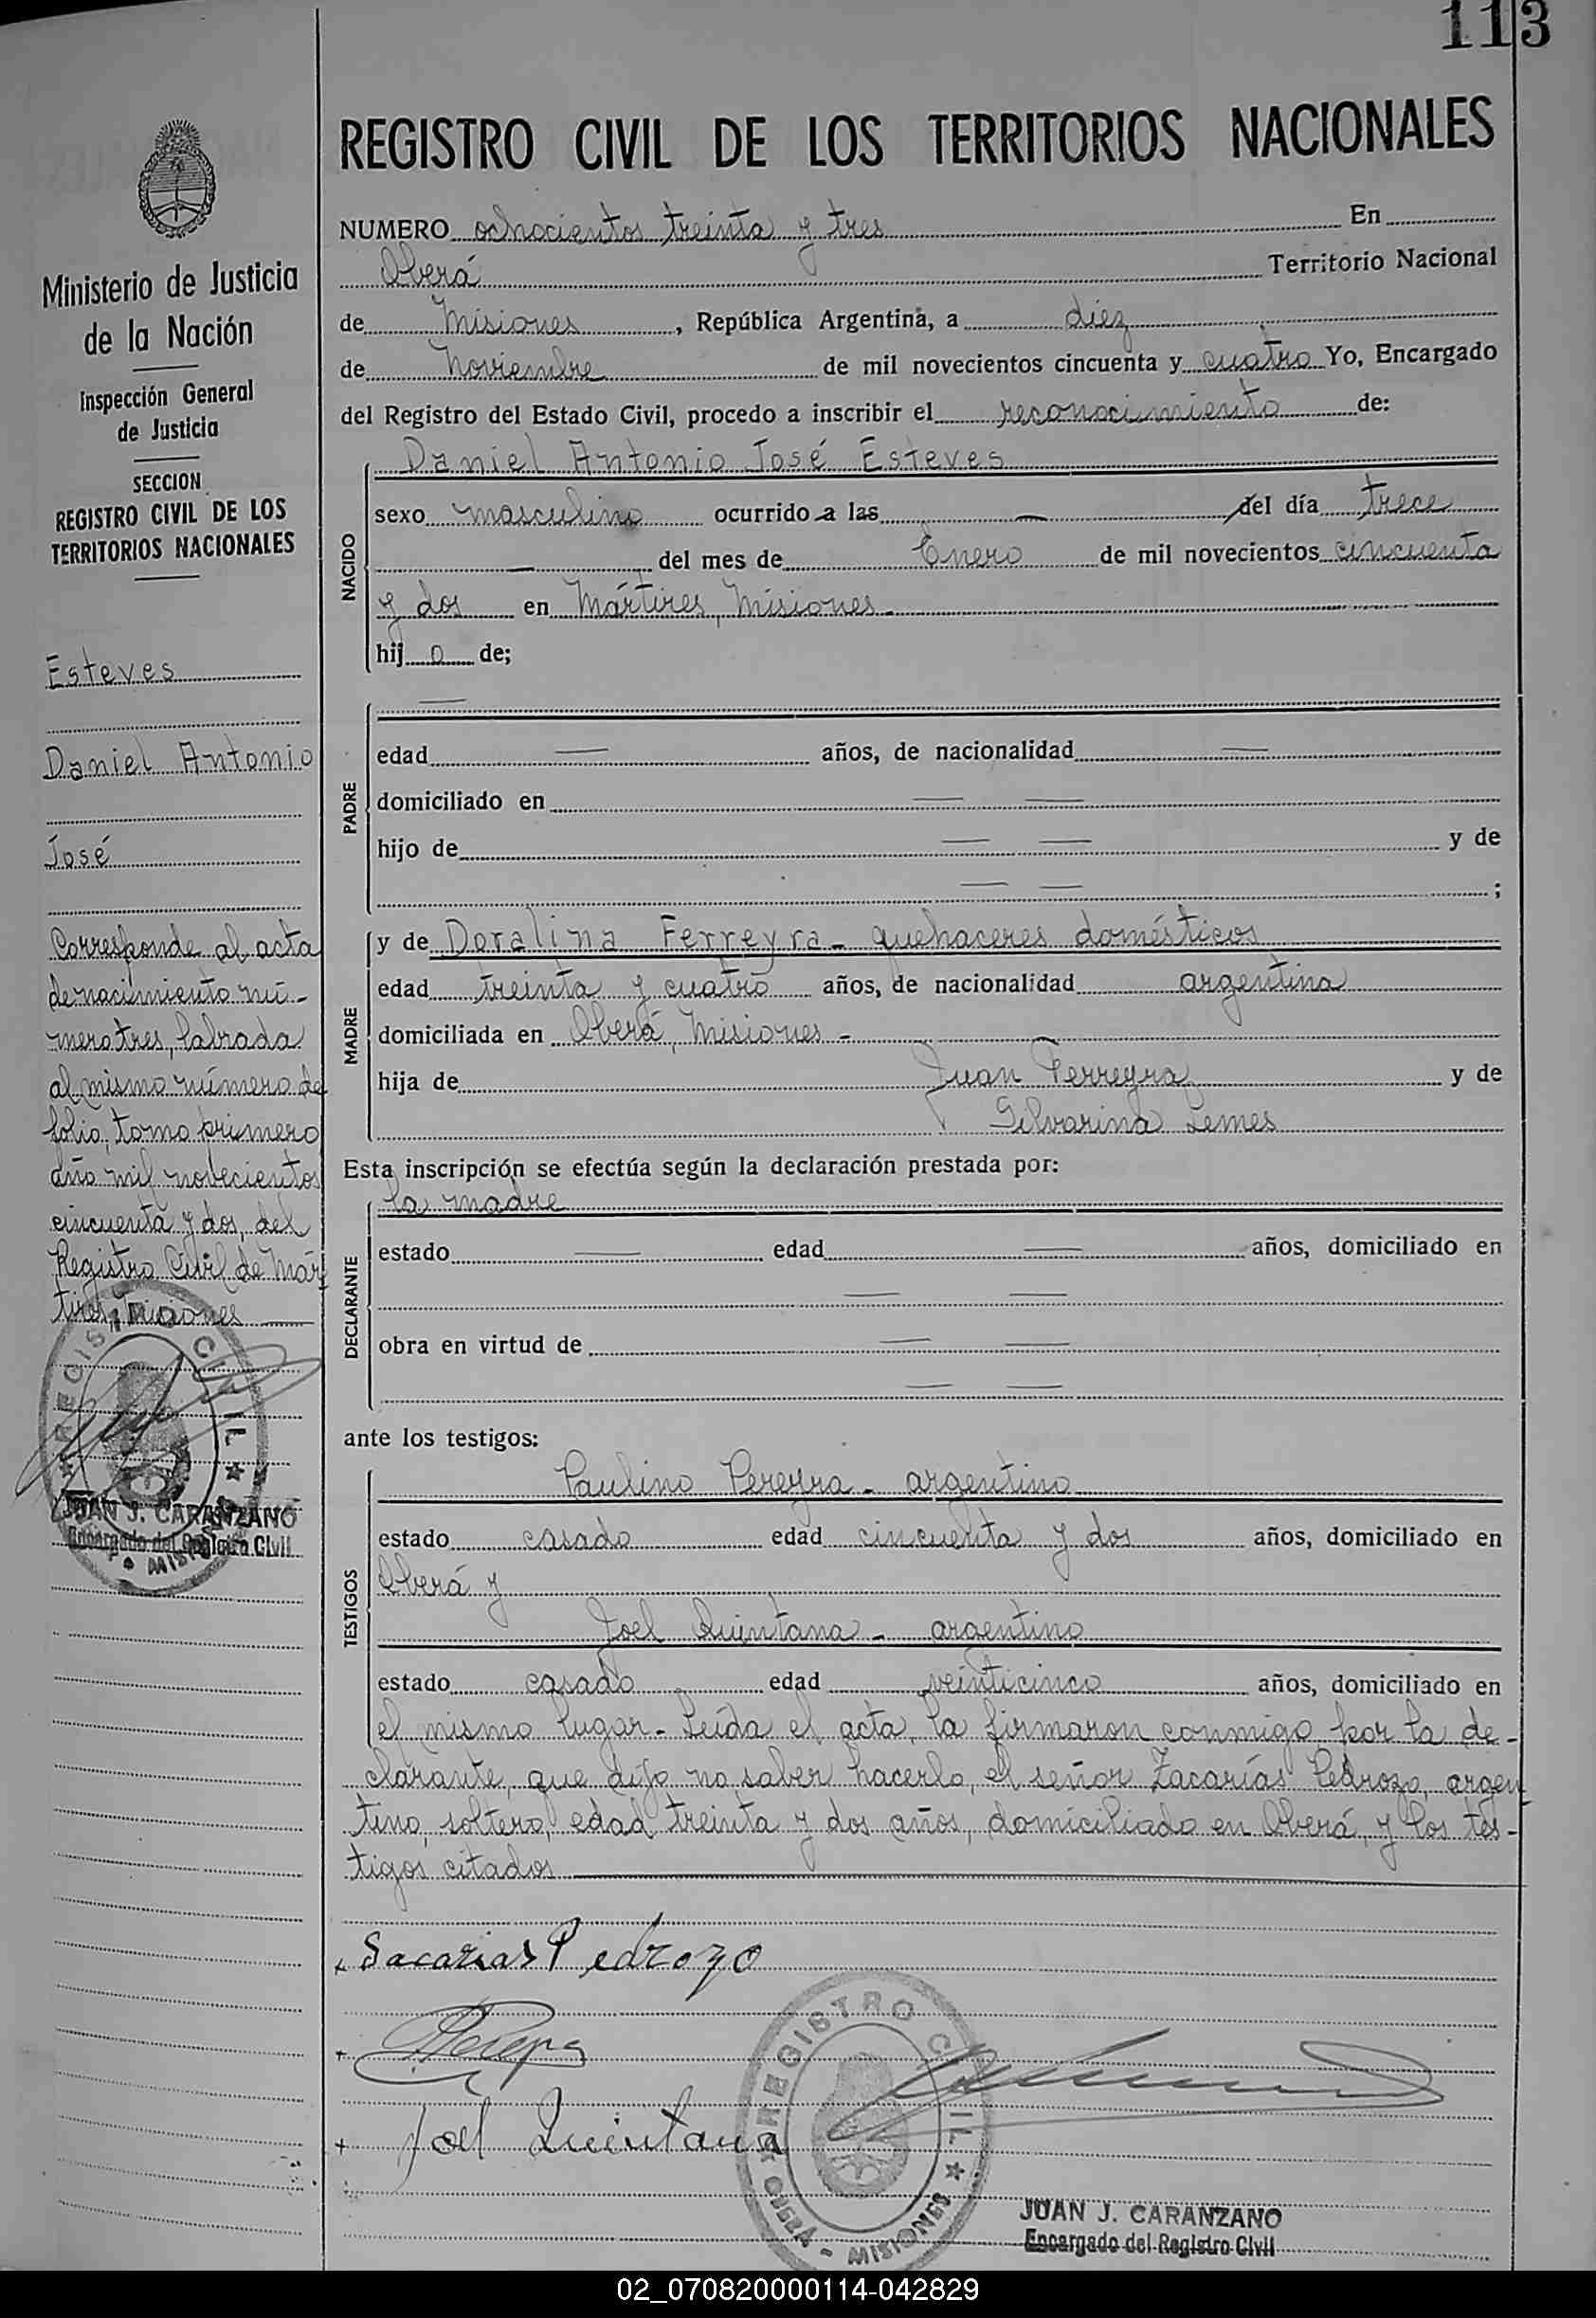 113
REGISTRO CIVIL DE LOS TERRITORIOS NACIONALES
Ministerio de Justicia
de la Nación
Inspección General
de Justicia
SECCION
REGISTRO CIVIL DE LOS
TERRITORIOS NACIONALES
Esteves
Daniel Antonio
José
Corresponde al acta
de nacimiento nú-
mero tres, labrada
al mismo número de
folio, tomo primero
año mil novecientos
cincuenta y dos, del
Registro Civil de Már
tires, Misiones
REGISTRO CIVIL
MISIONES
JUAN J. CARANZANO
Encargado del Registro Civil
NUMERO ochocientos treinta y tres En
Oberá Territorio Nacional
de Misiones, República Argentina, a diez
de Noviembre de mil novecientos cincuenta y cuatro Yo, Encargado
del Registro del Estado Civil, procedo a inscribir el reconocimiento de:
NACIDO
Daniel Antonio José Esteves
sexo masculino ocurrido a las — del día trece
— del mes de Enero de mil novecientos cincuenta
y dos en Mártires, Misiones.
hijo de;
PADRE
—
edad — años, de nacionalidad —
domiciliado en — —
hijo de — — y de
— — ;
MADRE
y de Doralina Ferreyra - quehaceres domésticos
edad treinta y cuatro años, de nacionalidad argentina
domiciliada en Oberá, Misiones -
hija de Juan Ferreyra y de
Silvarina Lemes
Esta inscripción se efectúa según la declaración prestada por:
DECLARANTE
la madre
estado — edad — años, domiciliado en
— —
obra en virtud de — —
— —
ante los testigos:
TESTIGOS
Paulino Pereyra - argentino
estado casado edad cincuenta y dos años, domiciliado en
Oberá y
Joel Quintana - argentino
estado casado edad veinticinco años, domiciliado en
el mismo lugar - Leída el acta, la firmaron conmigo, por la de-
clarante, que dijo no saber hacerlo, el señor Zacarías Pedrozo, argen
tino, soltero, edad treinta y dos años, domiciliado en Oberá, y los tes-
tigos citados
Sacarias Pedrozo
Joel Quintana
REGISTRO CIVIL
OBERA - MISIONES
JUAN J. CARANZANO
Encargado del Registro Civil
02_070820000114-042829